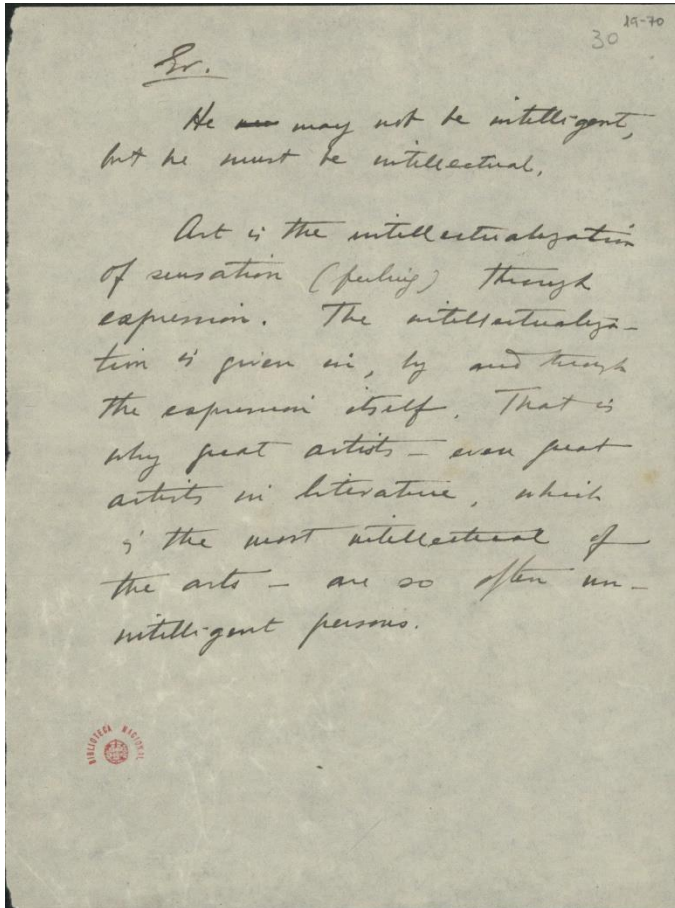 19-70
30
Er.
He may not be intelligent,
but he must be intellectual.
Art is the intellectualization
of sensation (feeling) through
expression. The intellectualiza-
tion is given in, by and through
the expression itself. That is
why great artists — even great
artists in literature, which
is the most intellectual of
the arts — are so often un-
intelligent persons.
BIBLIOTECA NACIONAL